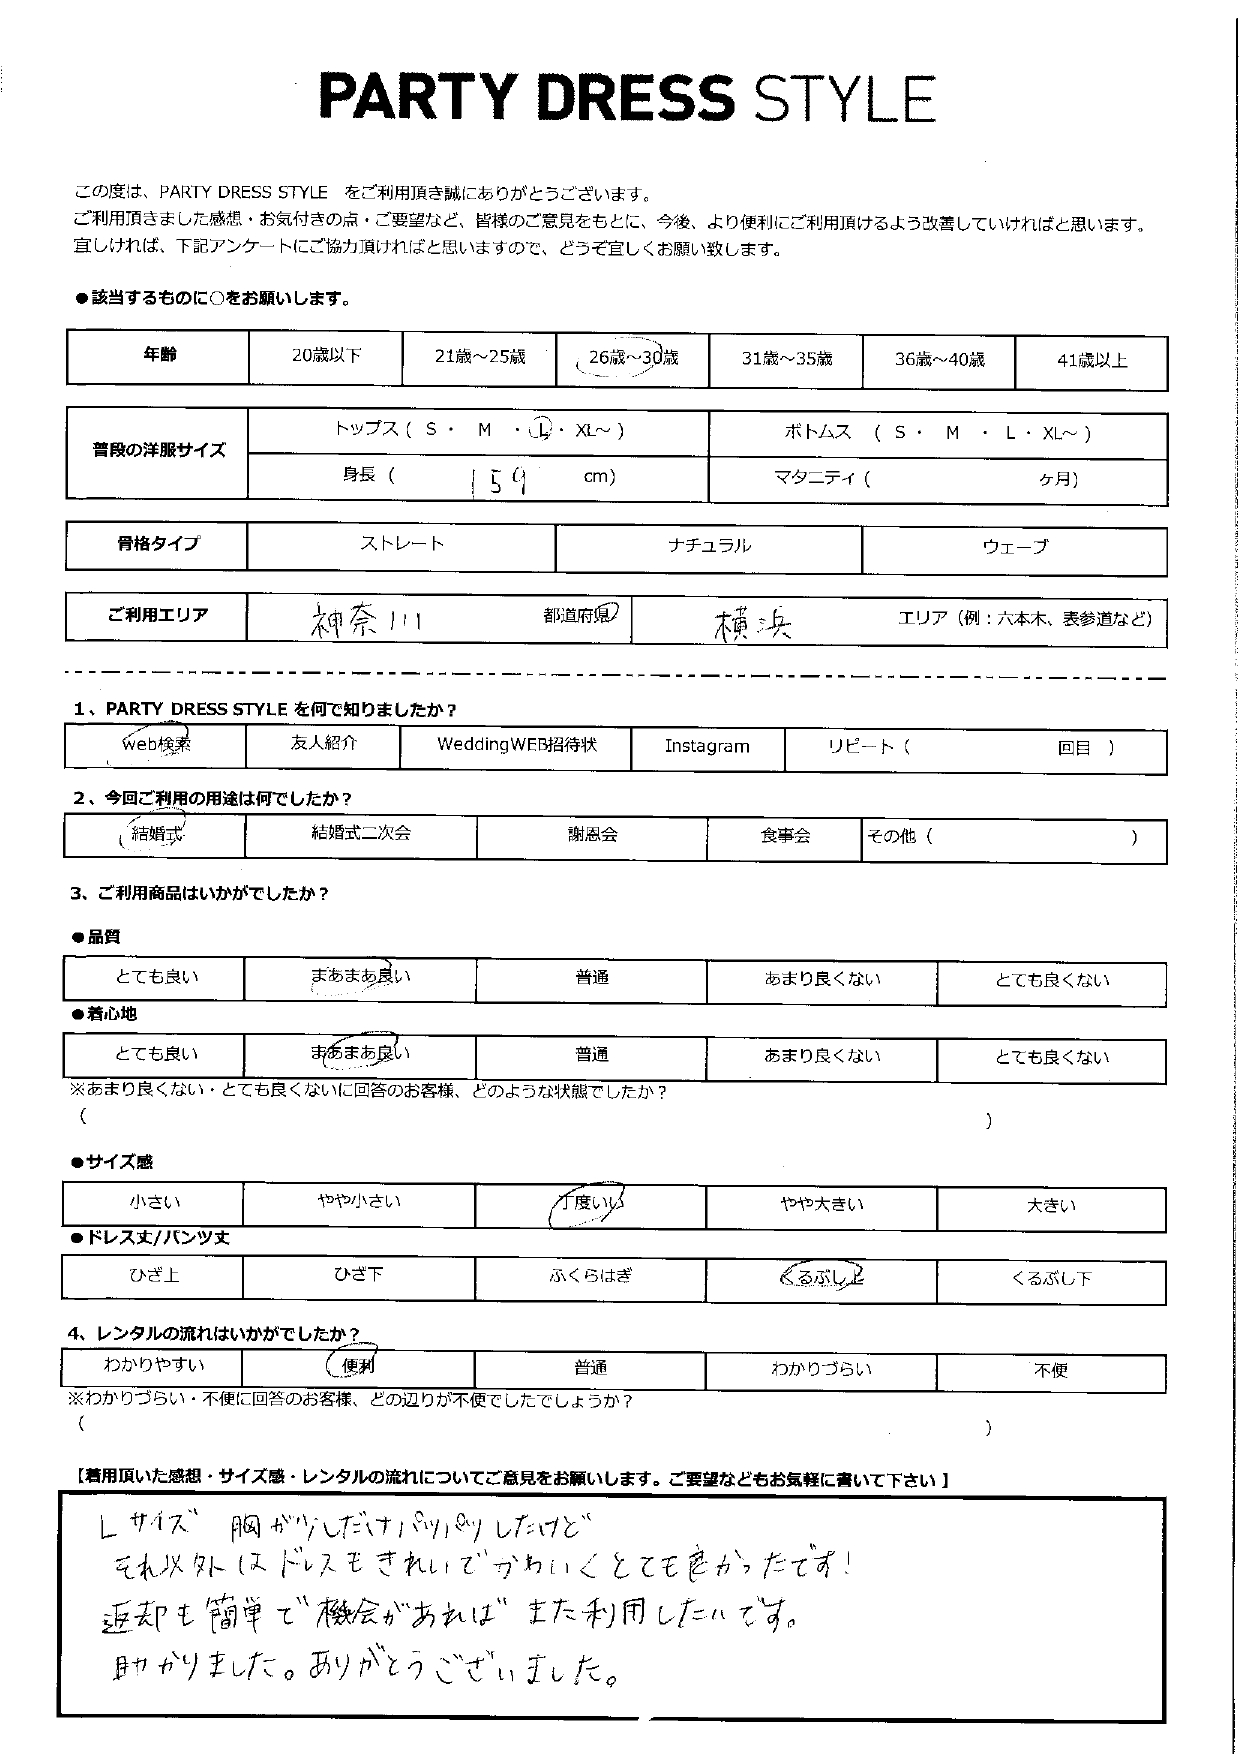 PARTY DRESS STYLE
この度は、PARTY DRESS STYLE をご利用頂き誠にありがとうございます。
ご利用頂きました感想・お気付きの点・ご要望など、皆様のご意見をもとに、今後、より便利にご利用頂けるよう改善していければと思います。
宜しければ、下記アンケートにご協力頂ければと思いますので、どうぞ宜しくお願い致します。
●該当するものに○をお願いします。
年齢 20歳以下 21歳～25歳 26歳～30歳 31歳～35歳 36歳～40歳 41歳以上
普段の洋服サイズ トップス ( S ・ M ・ L ・ XL～ ) ボトムス ( S ・ M ・ L ・ XL～ )
身長 ( 159 cm) マタニティ ( ケ月)
骨格タイプ ストレート ナチュラル ウェーブ
ご利用エリア 神奈川 都道府県 横浜 エリア（例：六本木、表参道など）
1、PARTY DRESS STYLE を何で知りましたか？
web検索 友人紹介 WeddingWEB招待状 Instagram リピート ( 回目 )
2、今回ご利用の用途は何でしたか？
結婚式 結婚式二次会 謝恩会 食事会 その他 ( )
3、ご利用商品はいかがでしたか？
●品質
とても良い まあまあ良い 普通 あまり良くない とても良くない
●着心地
とても良い まあまあ良い 普通 あまり良くない とても良くない
※あまり良くない・とても良くないに回答のお客様、どのような状態でしたか？
( )
●サイズ感
小さい やや小さい 丁度いい やや大きい 大きい
●ドレス丈/パンツ丈
ひざ上 ひざ下 ふくらはぎ くるぶし上 くるぶし下
4、レンタルの流れはいかがでしたか？
わかりやすい 便利 普通 わかりづらい 不便
※わかりづらい・不便に回答のお客様、どの辺りが不便でしたでしょうか？
( )
【着用頂いた感想・サイズ感・レンタルの流れについてご意見をお願いします。ご要望などもお気軽に書いて下さい】
Lサイズ 胸が少しだけパツパツしたけど
それ以外はドレスもきれいでかわいくとても良かったです!
返却も簡単で機会があればまた利用したいです。
助かりました。ありがとうございました。